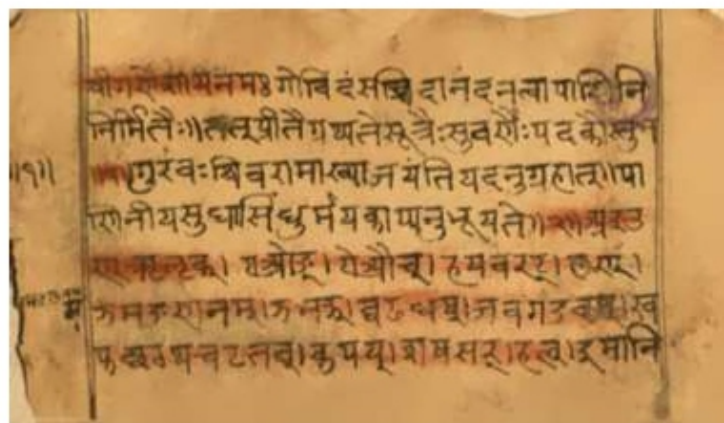 श्रीगणेशायनमः गोविदंसच्चिदानंदनत्वापाणिनि
निर्मितैः॥तत्प्रीतैग्रथ्यतेसूत्रैःसुवर्णैःपदकौस्तु
॥१॥ गुरंवःशिवरामाख्याजयंतियदनुग्रहात्॥पा
णिनीयसुधासिंधुर्मयकाप्यनुभूयते॥ अइउ
ण्ऋलृक्। एओङ्। ऐऔच्। हयवरट्। लण्।
ञमङणनम्।झभञ्।घढधष्।जबगडदश्।ख
फछठथचटतव्।कपय्।शषसर्।हल्।इमानि